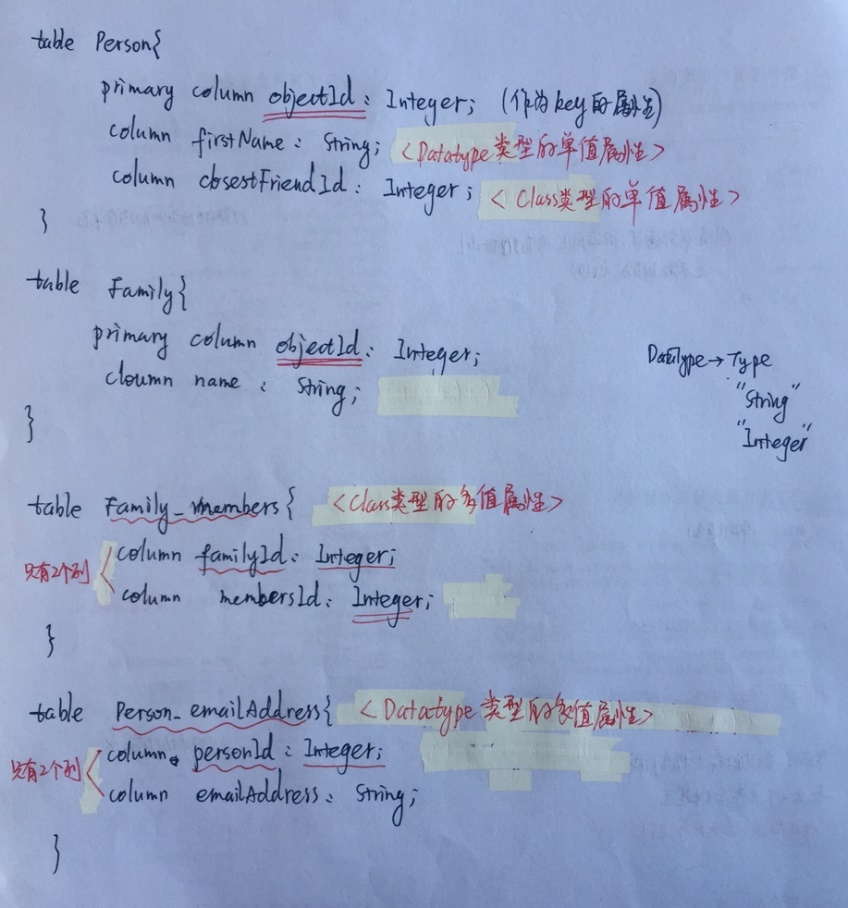 table Person{
primary column objectId : Integer; (作为key的属性)
column firstName : String; <Datatype类型的单值属性>
column closestFriendId : Integer; <Class类型的单值属性>
}
table Family{
primary column objectId : Integer;
cloumn name : String;
}
DataType→Type
"String"
"Integer"
table Family_members{ <Class类型的多值属性>
只有2个列
column familyId : Integer;
column membersId : Integer;
}
table Person_emailAddress{ <Datatype类型的多值属性>
只有2个列
column personId : Integer;
column emailAddress : String;
}